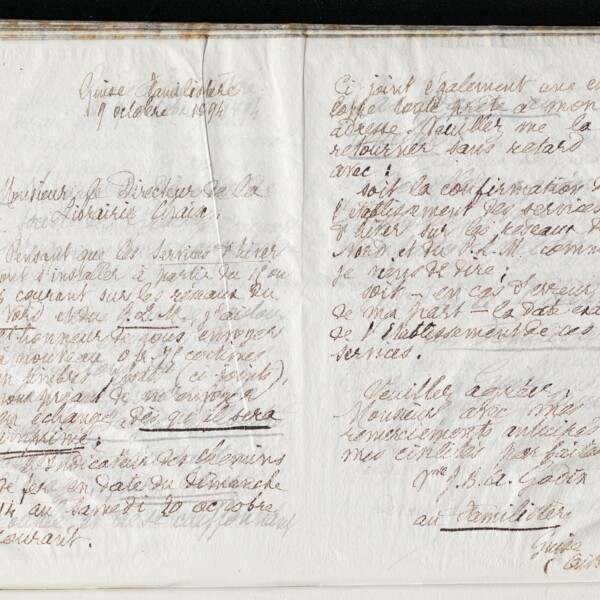 Guise Familistère
9 octobre 1894
Monsieur le Directeur de la
Librairie Chaix.
Pensant que les services d'hiver
vont s'installer à partir du 15 ou
courant sur les réseaux du
Nord et du P.L.M., j'ai
l'honneur de vous envoyer
à nouveau 0 fr. 75 centimes
en timbres-poste (ci joints),
vous priant de m'envoyer
en échange, dès qu'il sera
imprimé,
l'Indicateur des chemins
de fer en date du dimanche
14 au samedi 20 octobre
courant.
Ci joint également une
toute prête à mon
adresse. Veuillez me la
retourner sans retard
avec:
soit la confirmation de
l'établissement des services
d'hiver sur les réseaux du
Nord et du P.L.M. comme
je viens de dire;
soit — en cas d'erreur
de ma part — la date
de l'établissement de ces
services.
Veuillez agréer,
Monsieur avec mes
remerciements anticipés
mes civilités parfaites
Vve J.B.A. Godin
au Familistère
Guise